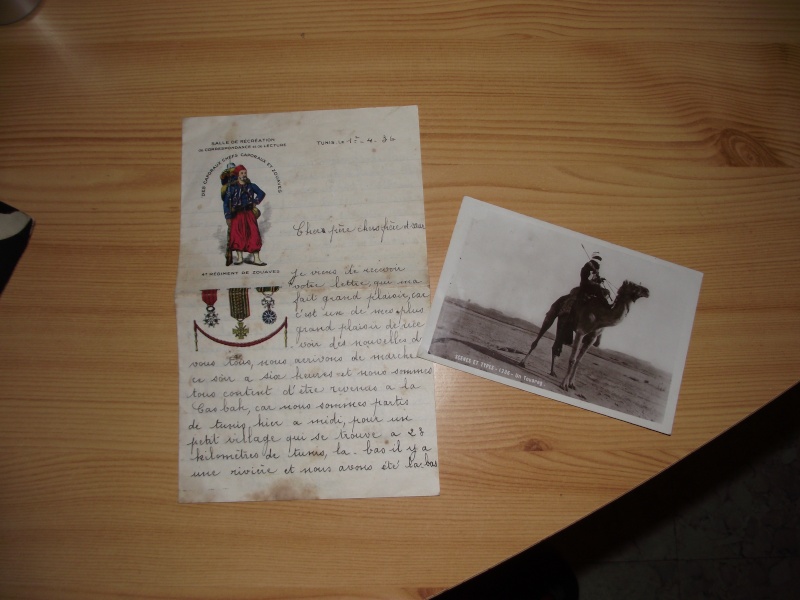 SALLE DE RECREATION
DE CORRESPONDANCE ET DE LECTURE
TUNIS, LE 15 - 4. 36
DES CAPORAUX CHEFS CAPORAUX ET ZOUAVES
Chers père chers frère et
4e REGIMENT DE ZOUAVES
Je viens de recevoir
votre lettre, qui ma
fait grand plaisir, car
c'est un de mes plus
grand plaisir de
voir des nouvelles de
vous tous, nous arrivons de marche
ce soir a six heures et nous sommes
tous content d'être revenus a la
Casbah, car nous sommes partis
de tunis hier a midi, pour un
petit village qui se trouve a 28
kilomètres de tunis, la-bas il y a
une rivière et nous avons été la-bas
SCÈNES ET TYPES - 1206 - Un Touareg